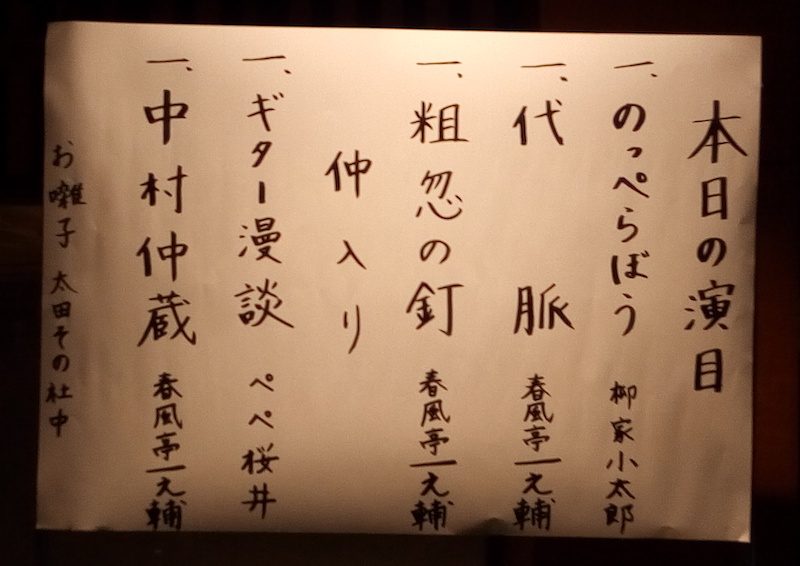 本日の演目
一、のっぺらぼう 柳家小太郎
一、代脈 春風亭一之輔
一、粗忽の釘 春風亭一之輔
仲入り
一、ギター漫談 ペペ桜井
一、中村仲蔵 春風亭一之輔
お囃子 太田その社中